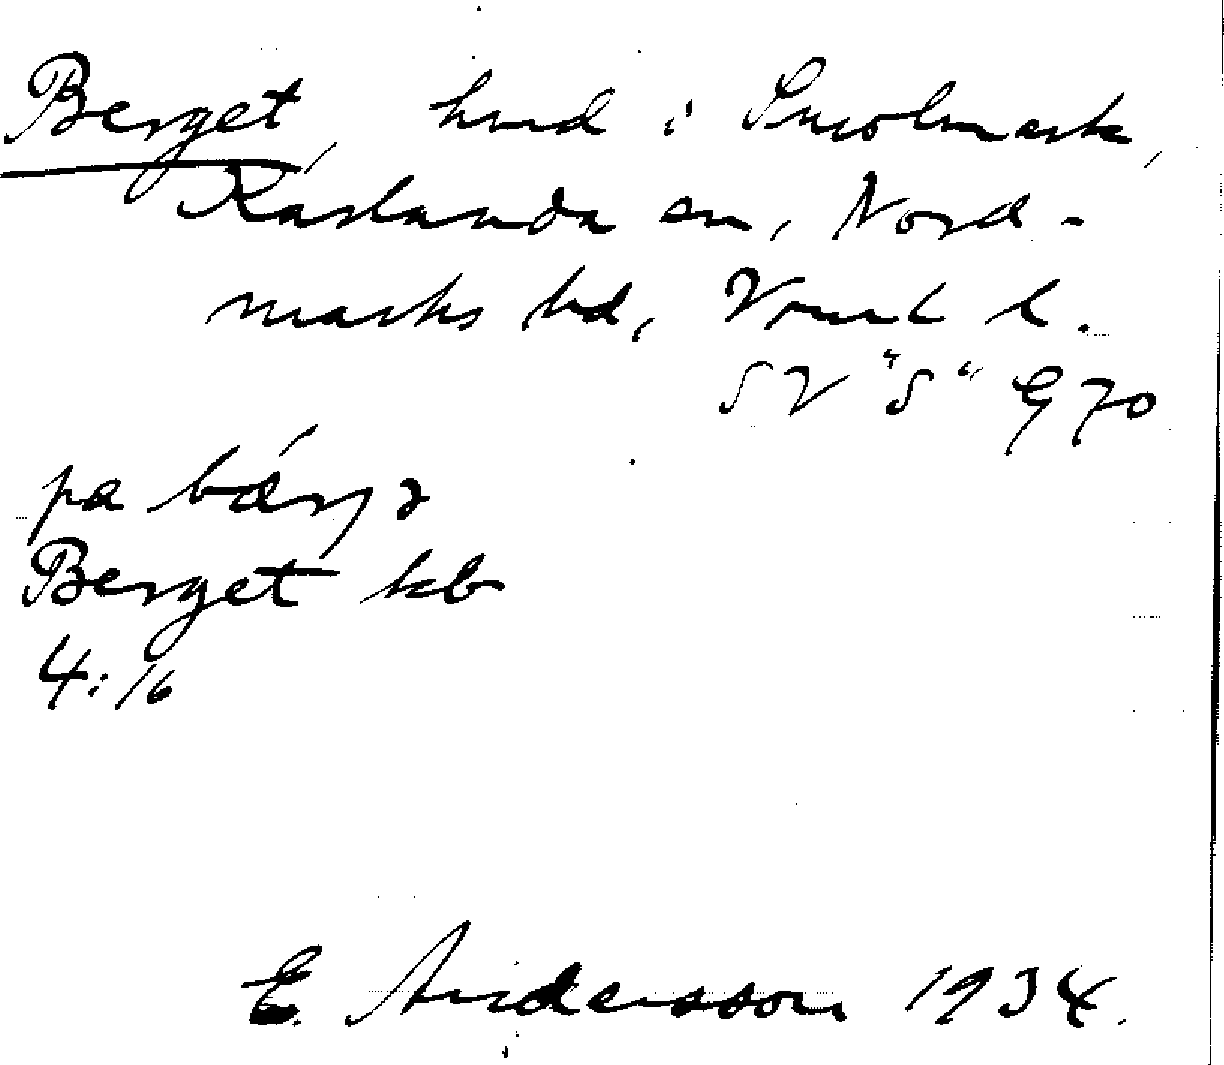 Berget, hmd i Smolmark,
Karlanda sn, Nord-
marks hd, Vrml l.
SV "S" G 70
pa bærjə
Berget kb
4:16
E. Andersson 1934.